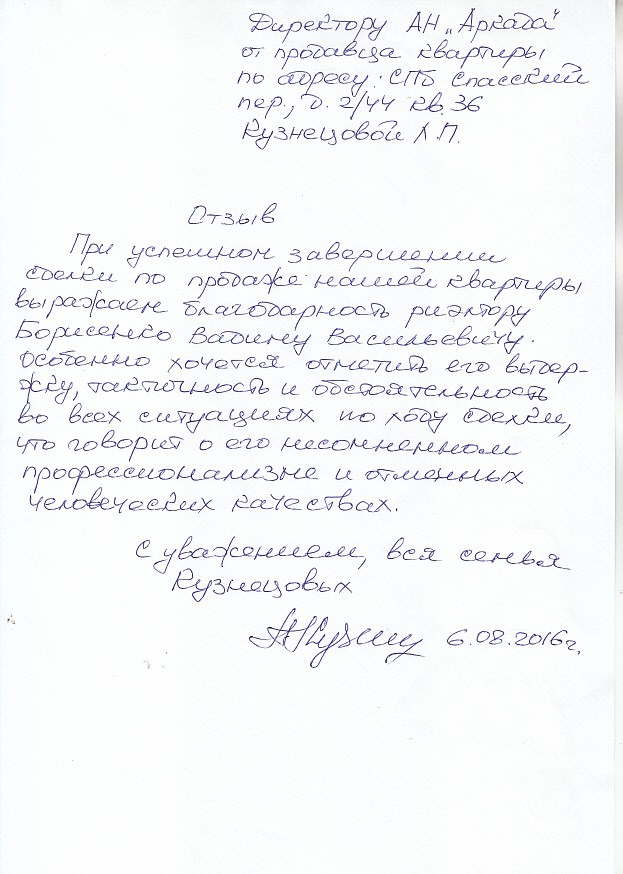 Директору АН „Аркада"
от продавца квартиры
по адресу: СПб Спасский
пер., д. 2/44 кв. 36
Кузнецовой Л.П.
Отзыв
При успешном завершении
сделки по продаже нашей квартиры
выражаем благодарность риэлтору
Борисенко Вадиму Васильевичу.
Особенно хочется отметить его выдер-
жку, тактичность и обстоятельность
во всех ситуациях по ходу сделки,
что говорит о его несомненном
профессионализме и отменных
человеческих качествах.
С уважением, вся семья
Кузнецовых
6.08.2016г.